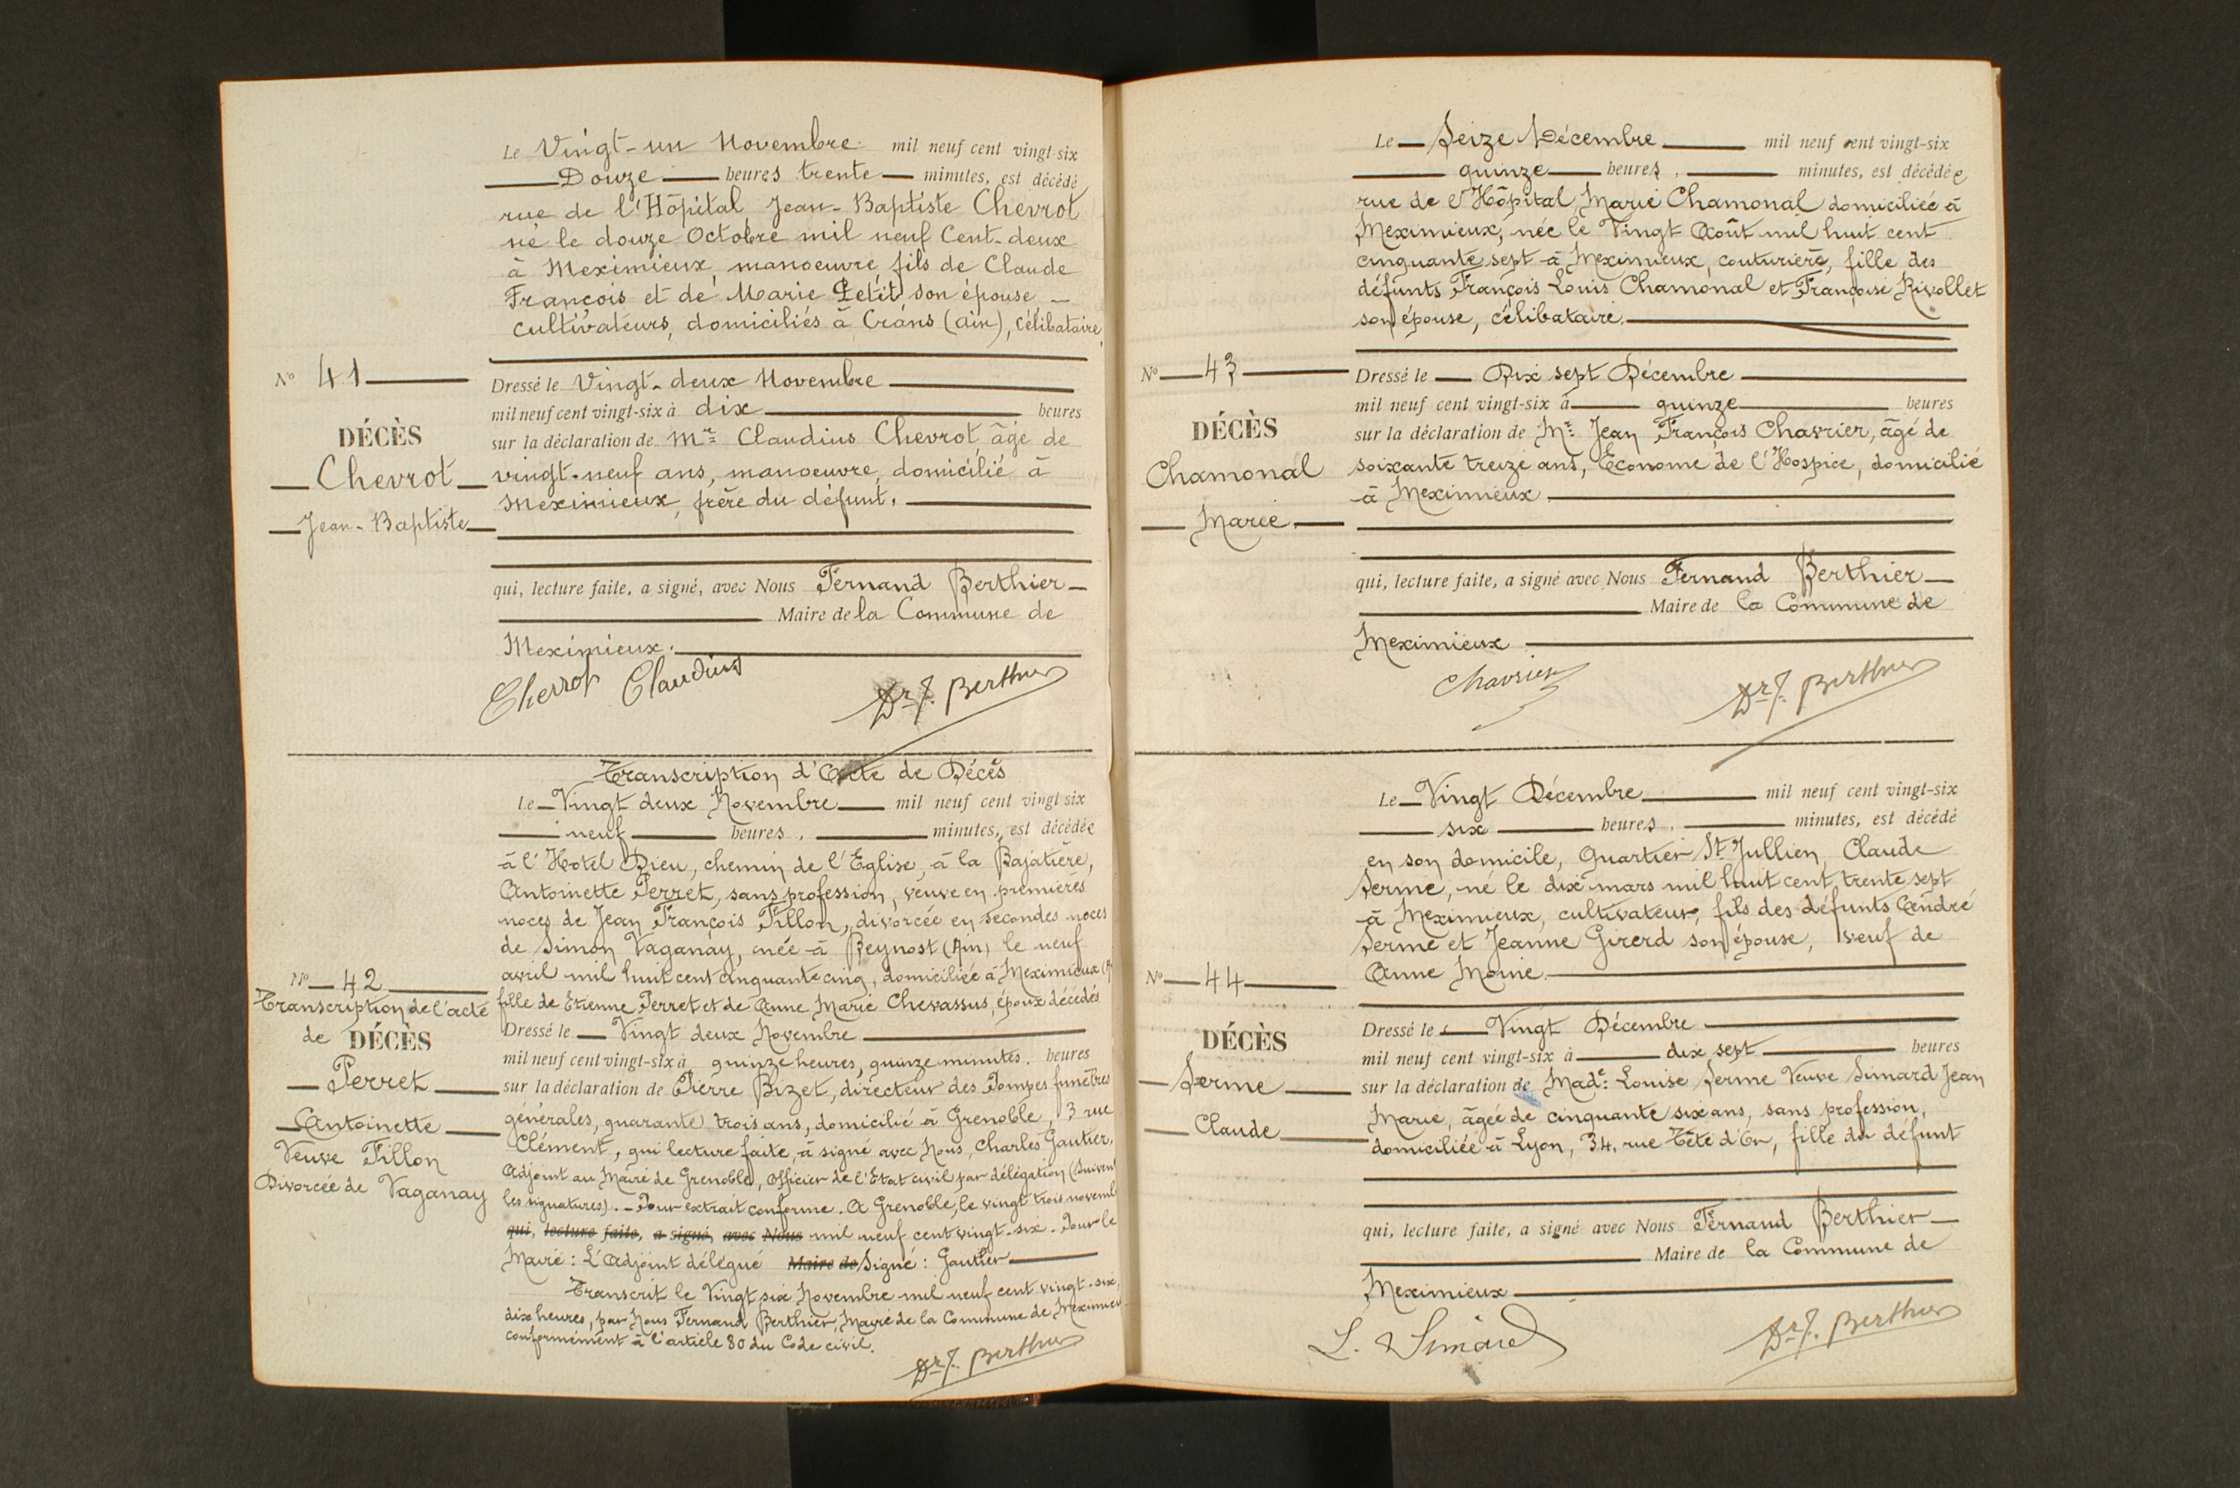 Le Vingt-un Novembre mil neuf cent vingt-six
Douze heures trente minutes, est décédé
rue de l'Hôpital, Jean-Baptiste Chevrot
né le douze Octobre mil neuf Cent-deux
à Meximieux, manoeuvre, fils de Claude
François et de Marie Petit son épouse
cultivateurs, domiciliés à Crans (Ain), célibataire,
N° 41
DÉCÈS
Chevrot
Jean-Baptiste
Dressé le Vingt-deux Novembre
mil neuf cent vingt-six à dix heures
sur la déclaration de Mr Claudius Chevrot, âgé de
vingt-neuf ans, manoeuvre, domicilié à
Meximieux, frère du défunt.
qui, lecture faite, a signé, avec Nous Fernand Berthier
Maire de la Commune de
Meximieux.
Chevrot Claudius
Dr F. Berthier
Transcription d'Acte de Décès
Le Vingt deux Novembre mil neuf cent vingt-six
neuf heures, minutes, est décédée
à l'Hotel Dieu, chemin de l'Eglise, à la Bajatière,
Antoinette Perret, sans profession, veuve en premières
noces de Jean François Tillon, divorcée en secondes noces
de Simon Vaganay, née à Beynost (Ain) le neuf
avril mil huit cent cinquante cinq, domiciliée à Meximieux
fille de Etienne Perret et de Anne Marie Chevassus, époux décédés
N° 42
Transcription de l'acte
de DÉCÈS
Perret
Antoinette
Veuve Tillon
Divorcée de Vaganay
Dressé le Vingt deux Novembre
mil neuf cent vingt-six à quinze heures, quinze minutes. heures
sur la déclaration de Pierre Bizet, directeur des Pompes funèbres
générales, quarante trois ans, domicilié à Grenoble, 3 rue
Clément, qui lecture faite, à signé avec Nous, Charles Gautier,
Adjoint au Maire de Grenoble, Officier de l'Etat civil par délégation (Suivent
les signatures). - Pour extrait conforme. A Grenoble, le vingt trois novemb
qui, lecture faite, a signé, avec Nous mil neuf cent vingt-six. Pour le
Maire : L'Adjoint délégué Maire de Signé : Gautier
Transcrit le Vingt six Novembre mil neuf cent vingt-six,
dix heures, par Nous Fernand Berthier, Maire de la Commune de Meximieu
conformément à l'article 80 du Code civil.
Dr F. Berthier
Le Seize Décembre mil neuf cent vingt-six
quinze heures, minutes, est décédée
rue de l'Hôpital, Marie Chamonal domiciliée à
Meximieux, née le Vingt Août mil huit cent
cinquante sept à Meximieux, couturière, fille des
défunts François Louis Chamonal et Françoise Rivollet
son épouse, célibataire.
N° 43
DÉCÈS
Chamonal
Marie
Dressé le Dix sept Décembre
mil neuf cent vingt-six à quinze heures
sur la déclaration de Mr Jean François Chavrier, âgé de
soixante treize ans, Econome de l'Hospice, domicilié
à Meximieux
qui, lecture faite, a signé avec Nous Fernand Berthier
Maire de la Commune de
Meximieux
Chavrier
Dr F. Berthier
Le Vingt Décembre mil neuf cent vingt-six
six heures, minutes, est décédé
en son domicile, Quartier St Jullien, Claude
Serme, né le dix mars mil huit cent trente sept
à Meximieux, cultivateur, fils des défunts André
Serme et Jeanne Girerd son épouse, veuf de
Anne Moine.
N° 44
DÉCÈS
Serme
Claude
Dressé le Vingt Décembre
mil neuf cent vingt-six à dix sept heures
sur la déclaration de Made Louise Serme Veuve Simard Jean
Marie, âgée de cinquante six ans, sans profession,
domiciliée à Lyon, 34, rue Tête d'Or, fille du défunt
qui, lecture faite, a signé avec Nous Fernand Berthier
Maire de la Commune de
Meximieux
L. Simard
Dr F. Berthier